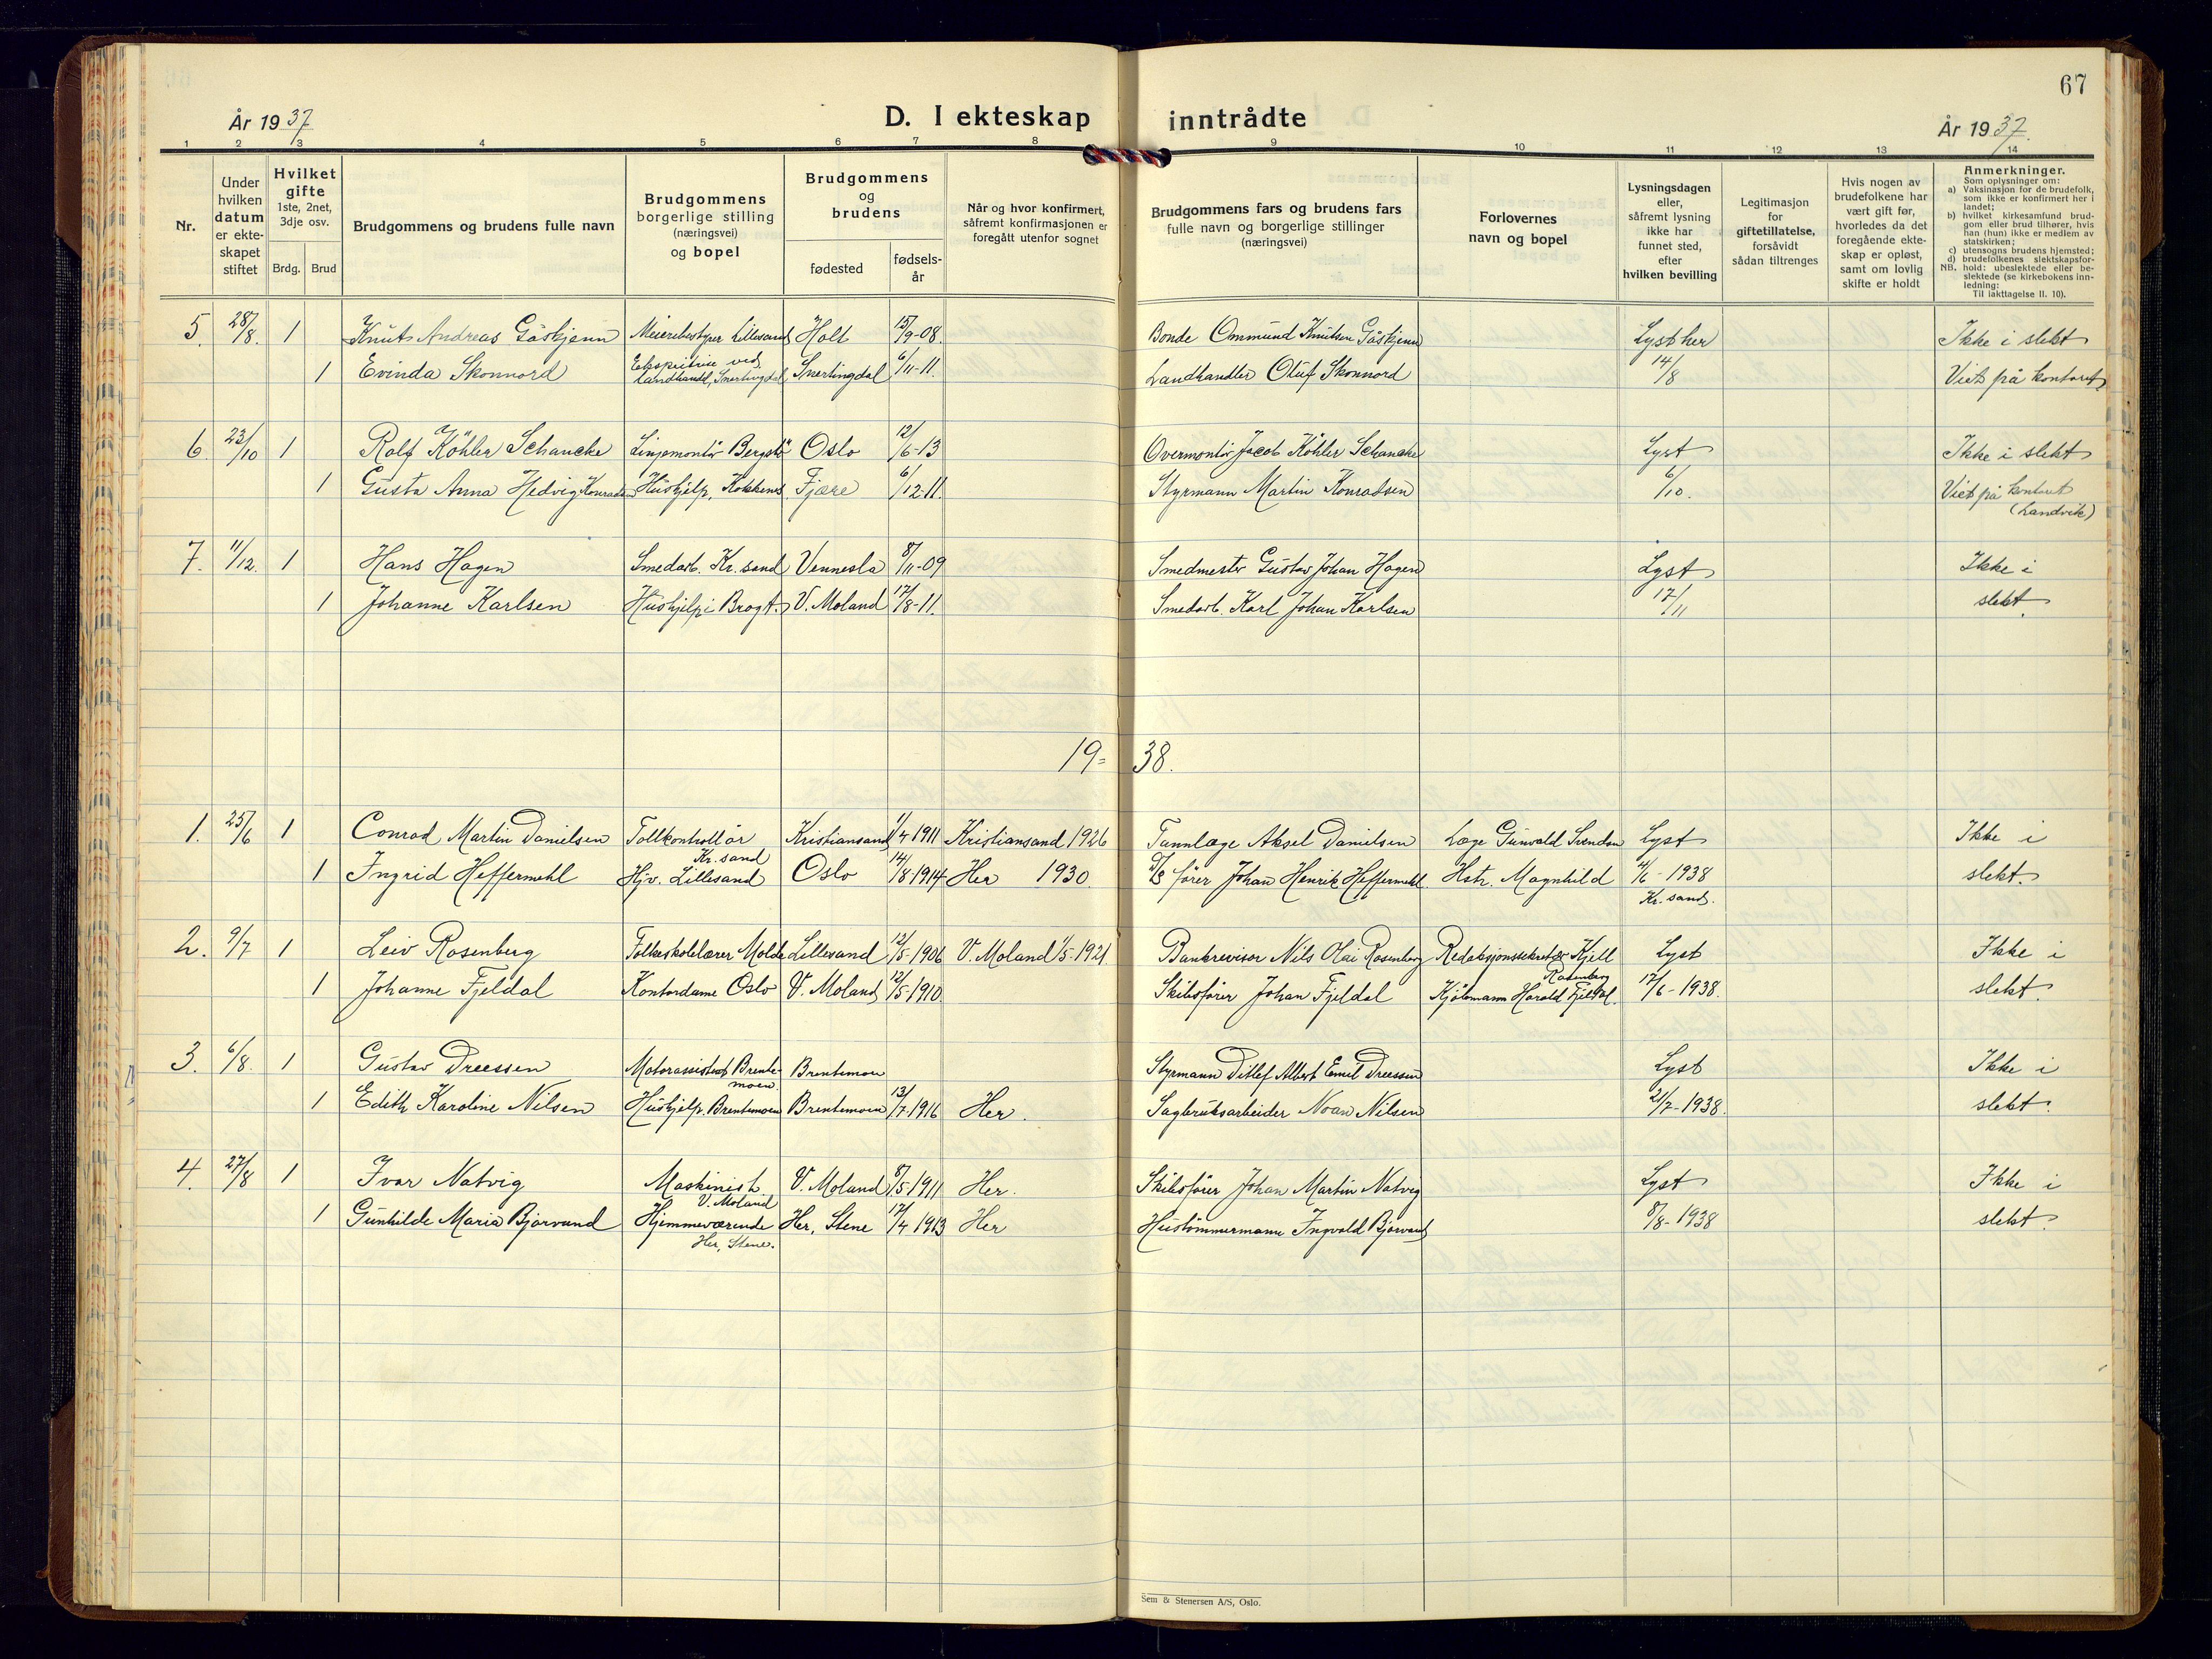 67
År 1937 D. I ekteskap inntrådte År 1937.
1 2 3 4 5 6 7 8 9 10 11 12 13 14
Nr.
Under
hvilken
datum
er ekte-
skapet
stiftet
Hvilket
gifte
1ste, 2net,
3dje osv.
Brdg. Brud
Brudgommens og brudens fulle navn
Brudgommens
borgerlige stilling
(næringsvei)
og bopel
Brudgommens
og
brudens
fødested
fødsels-
år
Når og hvor konfirmert,
såfremt konfirmasjonen er
foregått utenfor sognet
Brudgommens fars og brudens fars
fulle navn og borgerlige stillinger
(næringsvei)
Forlovernes
navn og bopel
Lysningsdagen
eller,
såfremt lysning
ikke har
funnet sted,
efter
hvilken bevilling
Legitimasjon
for
giftetillatelse,
forsåvidt
sådan tiltrenges
Hvis nogen av
brudefolkene har
vært gift før,
hvorledes da det
foregående ekte-
skap er opløst,
samt om lovlig
skifte er holdt
Anmerkninger.
Som oplysninger om:
a) Vaksinasjon for de brudefolk,
som ikke er konfirmert her i
landet;
b) hvilket kirkesamfund brud-
gom eller brud tilhører, hvis
han (hun) ikke er medlem av
statskirken;
c) utensogns brudens hjemsted;
d) brudefolkenes slektskapsfor-
NB. hold: ubeslektede eller be-
slektede (se kirkebokens inn-
ledning:
Til iakttagelse II. 10).
5. 28/8. 1 Knut Andreas Gåskjenn Meieribestyrer Lillesand Holt 15/9-08. Bonde Ommund Knutsen Gåskjenn Lyst her Ikke i slekt
1 Evinda Skonnord Ekspeditrise ved
landhandel, Snertingdal Snertingdal 6/11-11. Landhandler Oluf Skonnord 14/8 Viet på kontoret
6. 23/10 1 Rolf Köhler Schancke Linjemontör Oslo 12/6-13 Overmontör Jacob Köhler Schancke Lyst Ikke i slekt
1 Gusta Anna Hedvig Konradsen Hushjelp, Fjære 6/12-11. Styrmann Martin Konradsen 6/10. Viet på kontoret
(Landvik)
7. 11/12. 1 Hans Hagen Smedarb. Kr.sand Vennesla 8/11-09 Smedmester Gustav Johan Hagen Lyst Ikke i
1 Johanne Karlsen Hushjelp i V. Moland 17/8-11. Smedarb. Karl Johan Karlsen 17/11 slekt.
19- 38.
1. 25/6 1 Conrad Martin Danielsen Tollkontrollör
Kr.sand Kristiansand 1/4 1911 Kristiansand 1926 Tannlæge Aksel Danielsen Læge Gunvald Svendsen Lyst Ikke i
1 Ingrid Heffermehl Hjv. Lillesand Oslo 14/8-1914 Her 1930. D/S fører Johan Henrik Heffermehl Hstr. Magnhild 4/6-1938
Kr.sand. slekt.
2. 9/7 1 Leiv Rosenberg Folkeskolelærer Molde Lillesand 12/5-1906 V. Moland 1/5-1921. Bankrevisor Nils Olai Rosenberg Redaksjonssekretær Kjell
Rosenberg Lyst Ikke i
1 Johanne Fjeldal Kontordame Oslo V. Moland 12/5-1910 Skibsfører Johan Fjeldal Kjöbmann Harald Fjeldal. 17/6-1938. slekt.
3. 6/8. 1 Gustav Dreessen Motorassistent Brente-
moen Brentemoen Styrmann Ditlef Albert Emil Dreessen Lyst Ikke i
1 Edith Karoline Nilsen Hushjelp. Brentemoen Brentemoen 13/7-1916 Her. Sagbruksarbeider Noan Nilsen 21/7-1938. slekt.
4. 27/8 1 Ivar Natvig Maskinist
V. Moland V. Moland 8/5-1911 Her. Skibsfører Johan Martin Natvig Lyst Ikke i
1 Gunhilde Maria Bjorvand Hjemmeværende
Her, Stene. Her, Stene 17/4 1913 Her Hustömmermann Ingvald Bjorvand 8/8-1938 slekt.
Sem & Stenersen A/S, Oslo.